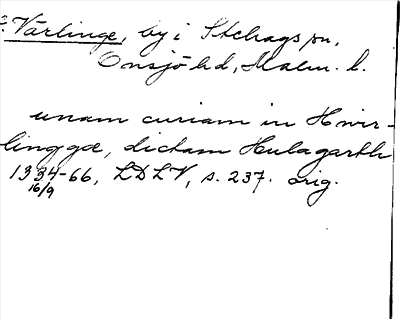 Värlinge, by i Stehags sn,
Onsjö hd, Malm. l.
unam curiam in Hwir-
linggœ, dictam Hulagarth
1334-66, LDLV, s. 237. orig.
16/9